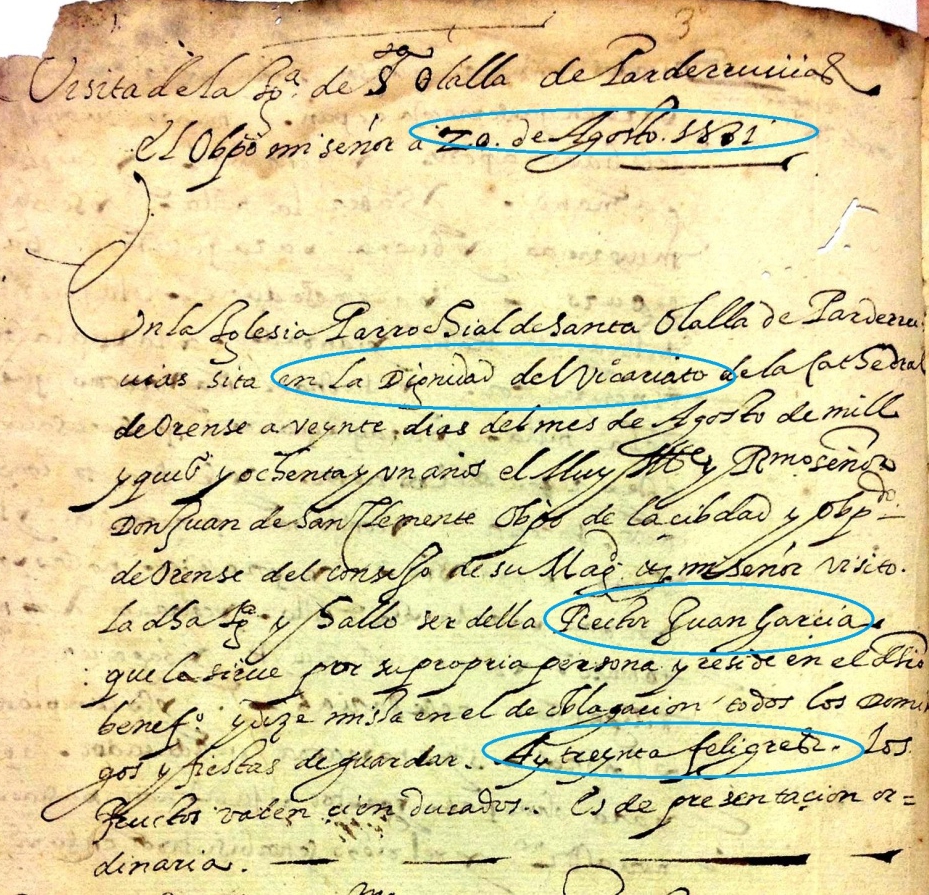 3
Visita de la Igª. de Stª Olalla de Parderruvias
El Obpō mi señor a 20. de Agosto. 1581
En la Iglesia Parrochial de Santa Olalla de Parderru-
uias sita en La Dignidad del Vicariato de la Cathedral
de Orense a veynte dias del mes de Agosto de mill
y quiºs y ochenta y un anos el Muy Illᵉ y Rmo señor
Don Juan de San Clemente Obpo de la cibdad y obpdo
de Orense del consejo de su Magᵈ mi señor visito.
La dha Igª y Hallo ser della Rector Juan Garcia.
que la sirue por su propria persona y reside en el dhō
benefº. y dize missa en el de oblagacion todos los Domin
gos y fiestas de guardar. Ay treynta feligreses. Los
fructos valen cien ducados. Es de presentacion or=
dinaria.